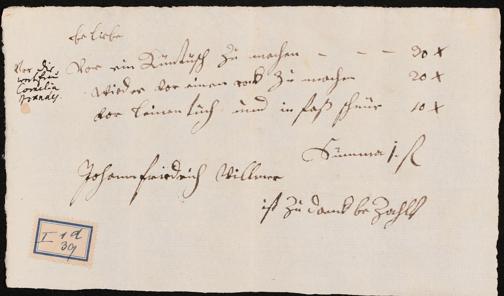 beliebe
Vor ein Kuntusch zu machen - - - 30 x
Wieder vor einen rock zu machen 20 x
vor leinen tuch und in faß schnür 10 x
Vor die
Cornelia
Summa 1. fl
Johann friedrich Willmer
ist zu danck bezahlt
I 1 d
39